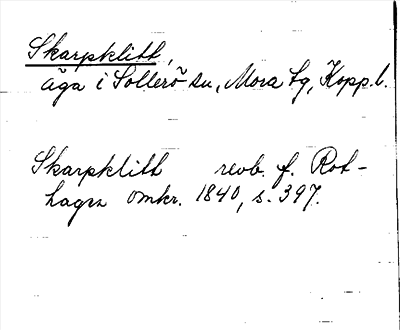 Skarpklitt,
äga i Sollerö sn, Mora tg, Kopp. l.
Skarpklitt revb. f. Rot-
hagen omkr. 1840, s. 397.